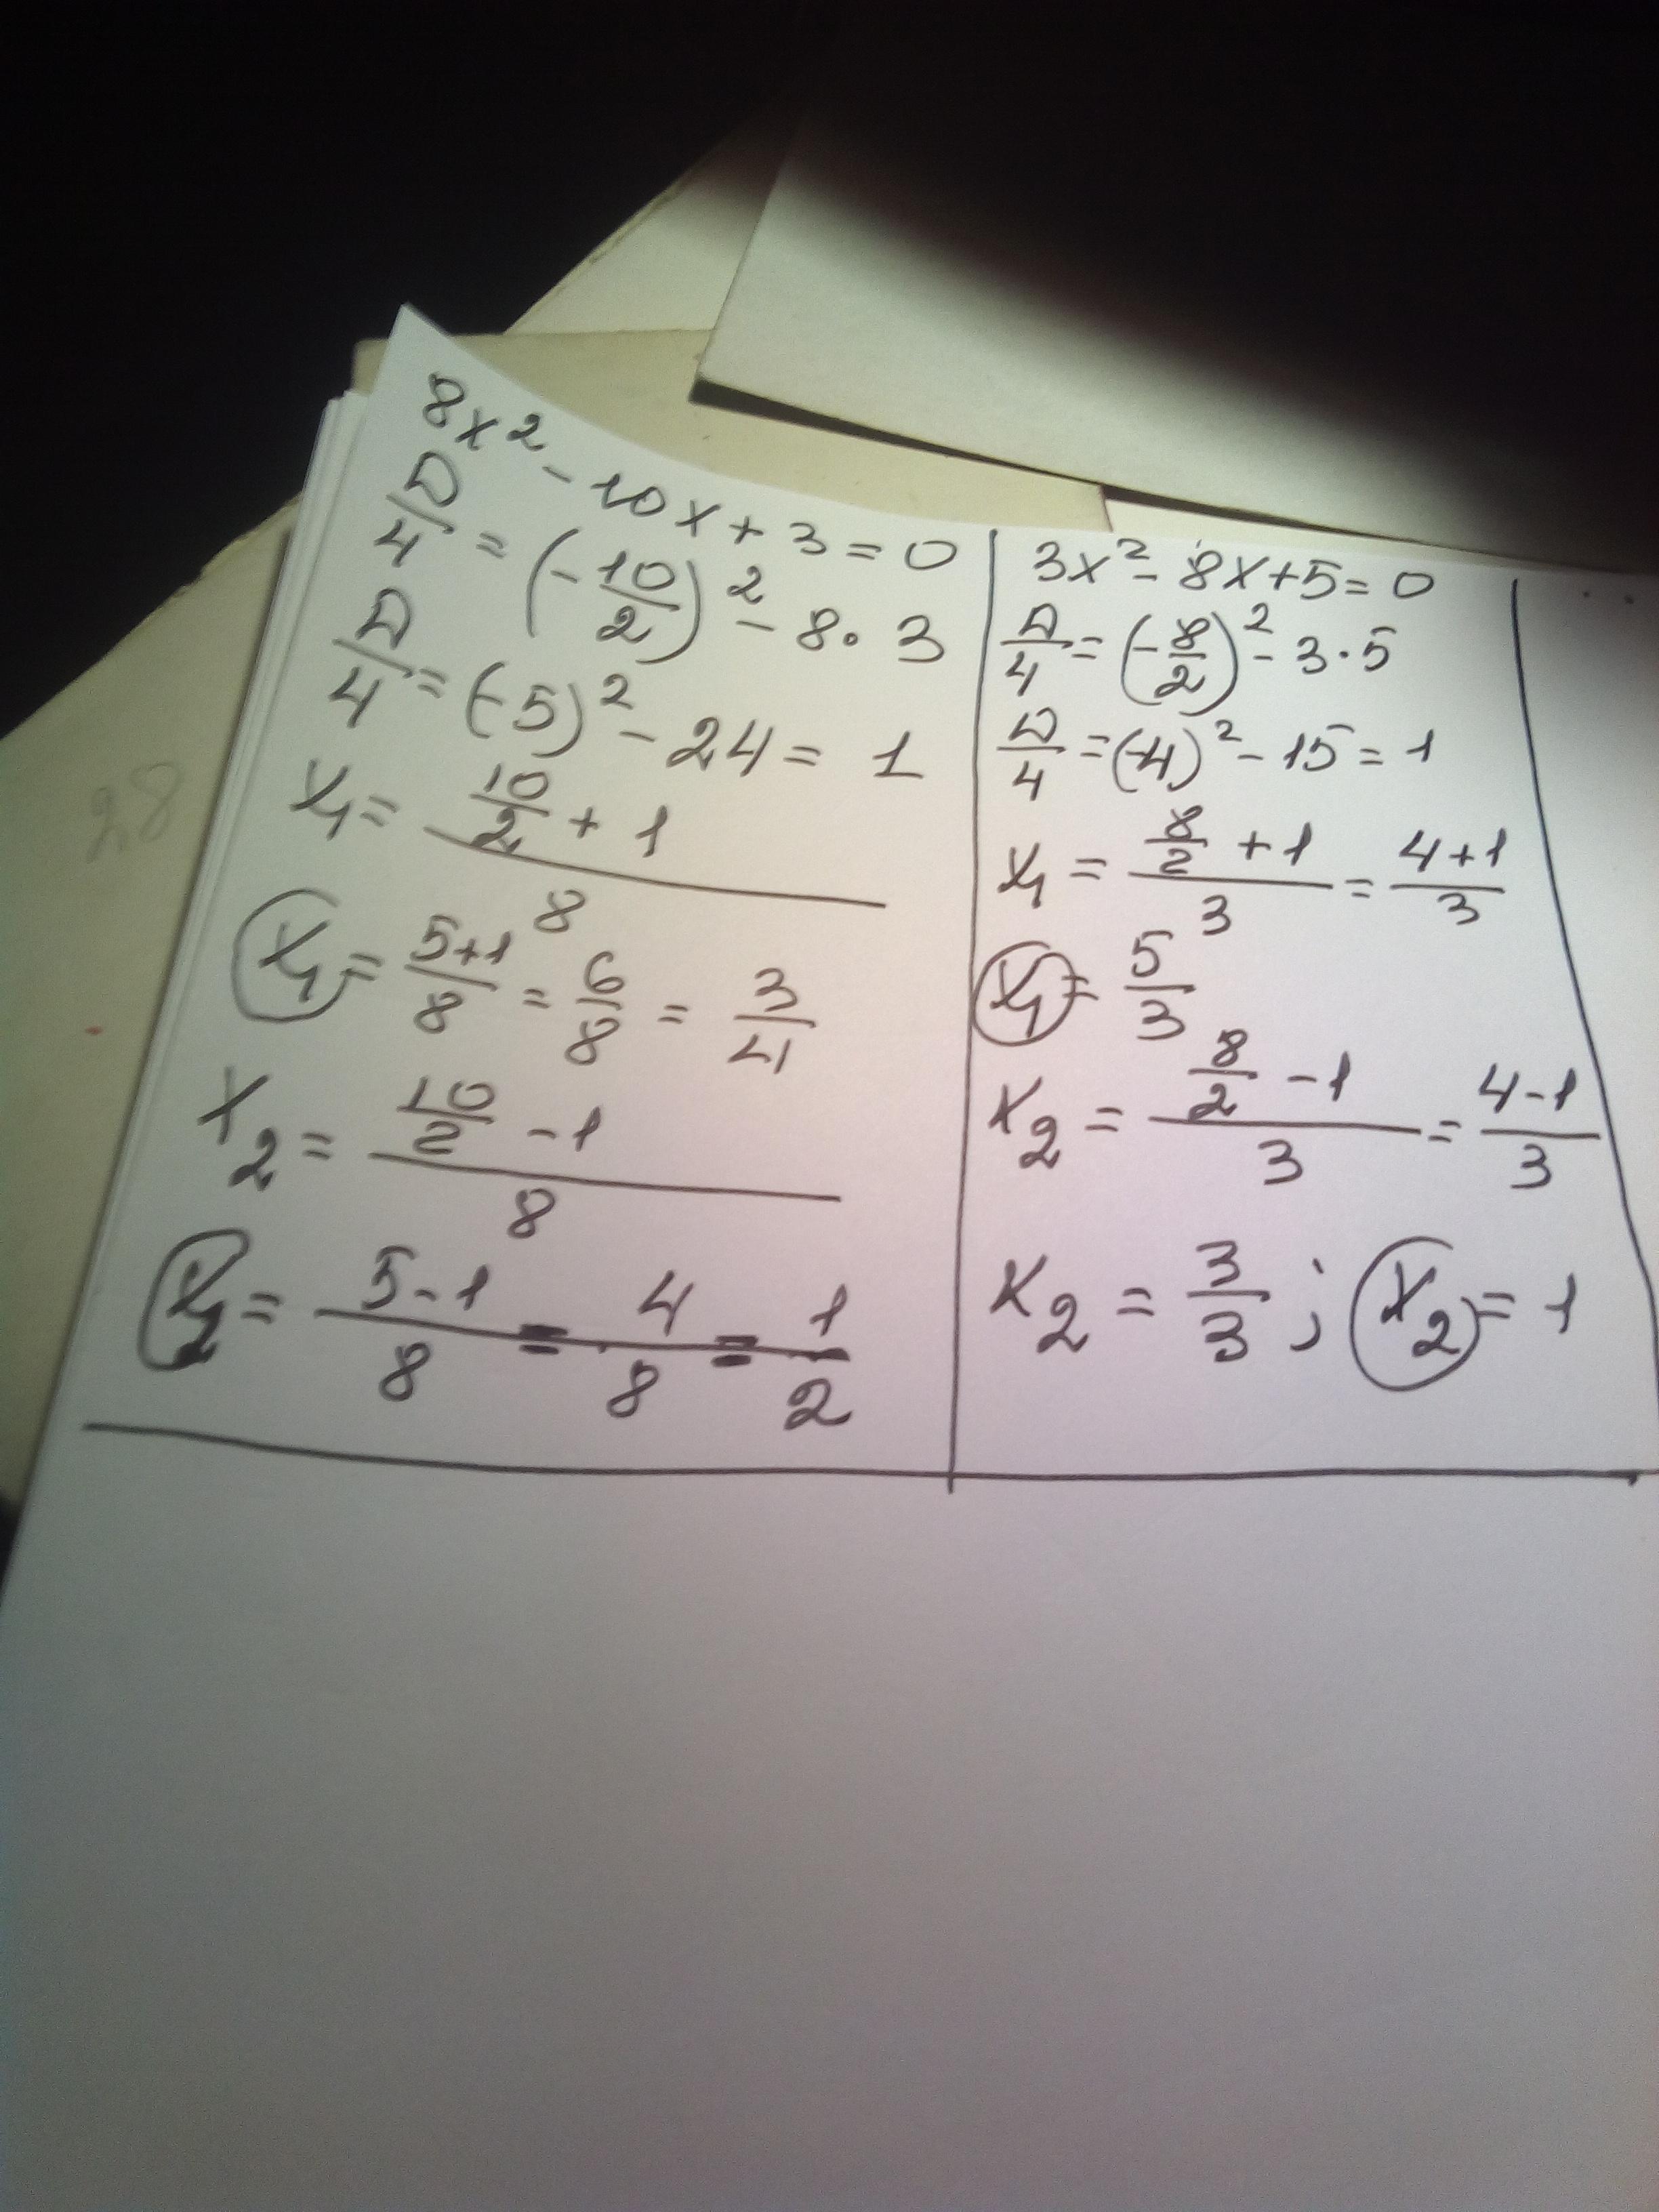 8x² - 10x + 3 = 0
D/4 = (-10/2)² - 8 · 3
D/4 = (-5)² - 24 = 1
x₁ = (10/2 + 1)/8
x₁ = (5+1)/8 = 6/8 = 3/4
x₂ = (10/2 - 1)/8
x₂ = (5-1)/8 = 4/8 = 1/2
3x² - 8x + 5 = 0
D/4 = (-8/2)² - 3 · 5
D/4 = (-4)² - 15 = 1
x₁ = (8/2 + 1)/3 = (4+1)/3
x₁ = 5/3
x₂ = (8/2 - 1)/3 = (4-1)/3
x₂ = 3/3 ; x₂ = 1
28